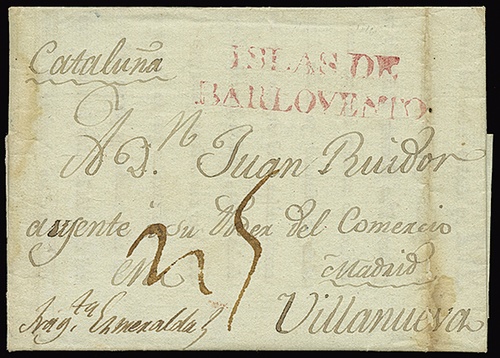 Cataluña
ISLAS DE
BARLOVENTO
A D.n Juan Ruidor
ausente a su Poder del Comercio
en Madrid
Villanueva
Frag.ta Esmeralda